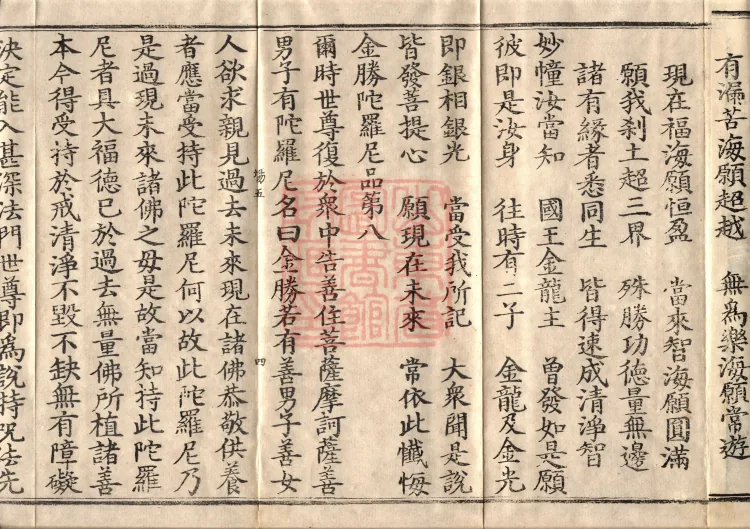 有漏苦海願超越　無為樂海願常遊
現在福海願恒盈　當來智海願圓滿
願我刹土超三界　殊勝功德量無邊
諸有緣者悉同生　皆得速成清淨智
妙幢汝當知　國王金龍主　曾發如是願
彼即是汝身　往時有二子　金龍及金光
即銀相銀光　當受我所記　大衆聞是說
皆發菩提心　願現在未來　常依此懺悔
金勝陀羅尼品第八
爾時世尊復於衆中告善住菩薩摩訶薩善
男子有陀羅尼名曰金勝若有善男子善女
場五　四
人欲求親見過去未來現在諸佛恭敬供養
者應當受持此陀羅尼何以故此陀羅尼乃
是過現未來諸佛之母是故當知持此陀羅
尼者具大福德已於過去無量佛所植諸善
本今得受持於戒清淨不毀不缺無有障礙
決定能入甚深法門世尊即為說持呪法先